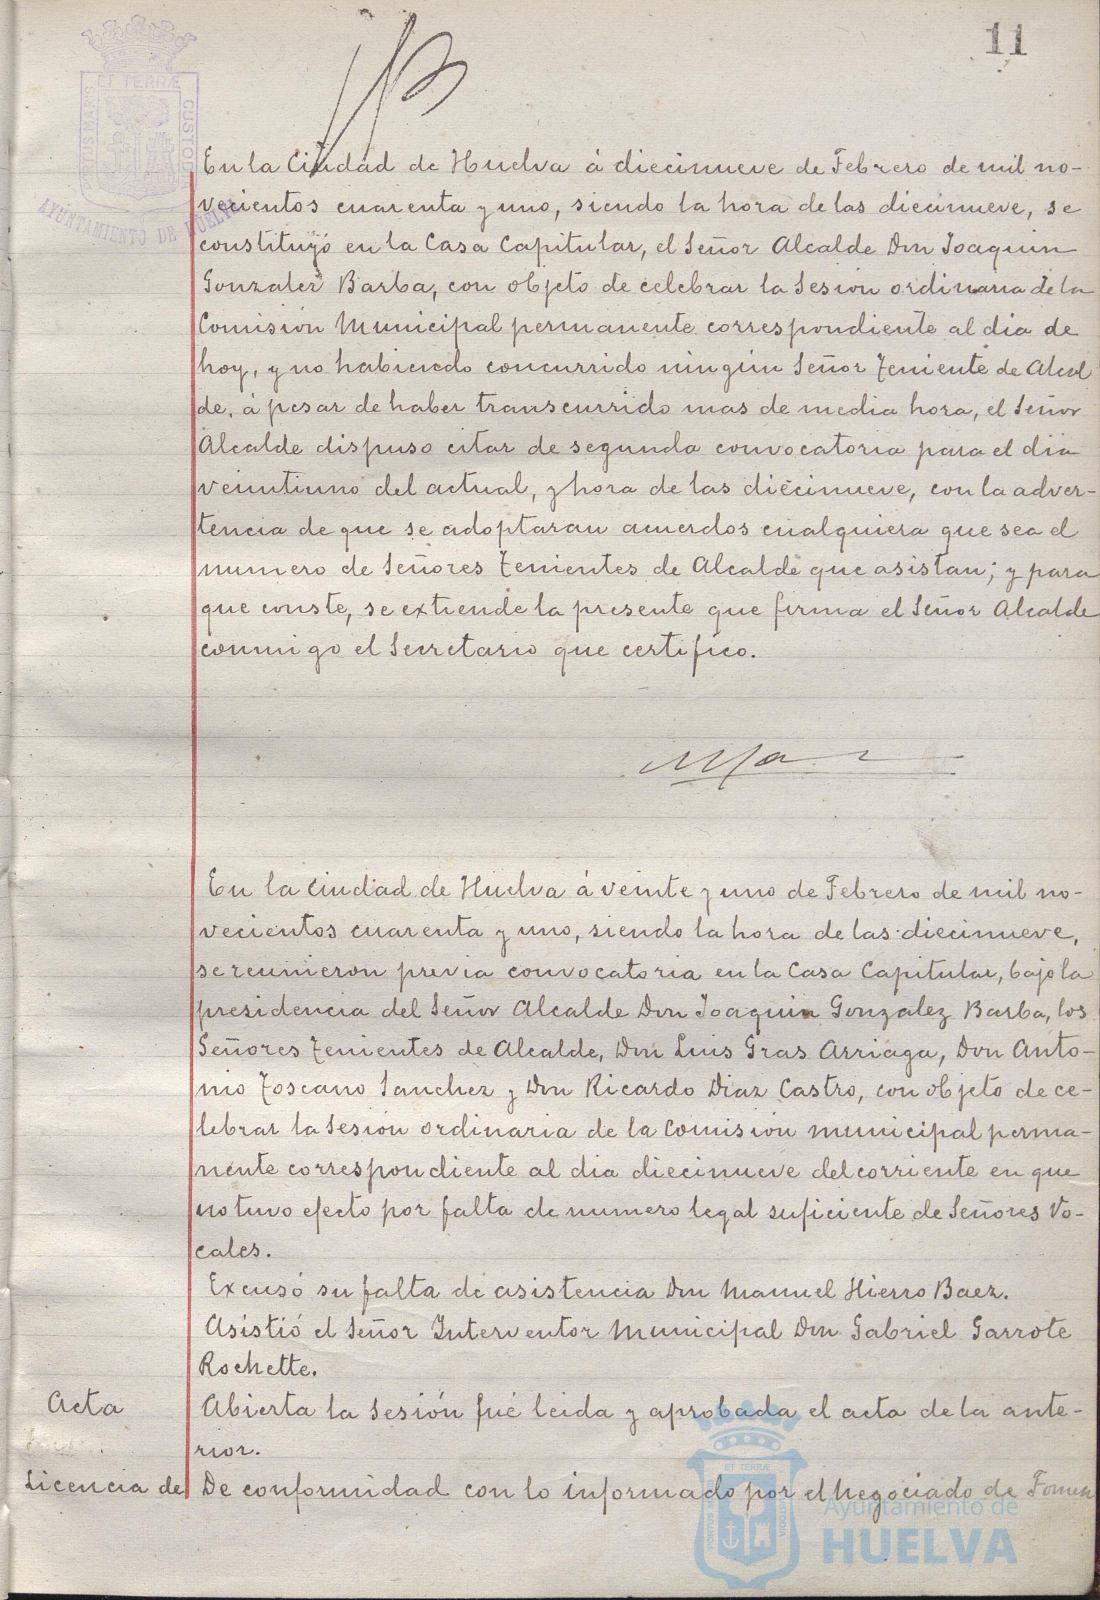 11
ET TERRÆ
CUSTODIA
AYUNTAMIENTO DE HUELVA
En la Ciudad de Huelva á diecinueve de Febrero de mil no-
vecientos cuarenta y uno, siendo la hora de las diecinueve, se
constituyó en la Casa Capitular, el Señor Alcalde Don Joaquin
Gonzalez Barba, con objeto de celebrar la Sesión ordinaria de la
Comisión Municipal permanente correspondiente al dia de
hoy, y no habiendo concurrido ningún Señor Teniente de Alcal
de, á pesar de haber transcurrido mas de media hora, el Señor
Alcalde dispuso citar de segunda convocatoria para el dia
veintiuno del actual, y hora de las diecinueve, con la adver-
tencia de que se adoptaran acuerdos cualquiera que sea el
numero de Señores Tenientes de Alcalde que asistan; y para
que conste, se extiende la presente que firma el Señor Alcalde
conmigo el Secretario que certifico.
En la Ciudad de Huelva á veinte y uno de Febrero de mil no-
vecientos cuarenta y uno, siendo la hora de las diecinueve,
se reunieron previa convocatoria en la Casa Capitular, bajo la
presidencia del Señor Alcalde Don Joaquin Gonzalez Barba, los
Señores Tenientes de Alcalde, Don Luis Gras Arriaga, Don Anto-
nio Toscano Sanchez y Don Ricardo Diaz Castro, con objeto de ce-
lebrar la Sesión ordinaria de la Comisión municipal perma-
nente correspondiente al dia diecinueve del corriente en que
no tuvo efecto por falta de numero legal suficiente de Señores Vo-
cales.
Excusó su falta de asistencia Don Manuel Hierro Baez.
Asistió el Señor Interventor Municipal Don Gabriel Garrote
Rochette.
Acta Abierta la Sesión fué leida y aprobada el acta de la ante-
rior.
Licencia de De conformidad con lo informado por el negociado de Fomen
ET TERRÆ
Ayuntamiento de
HUELVA